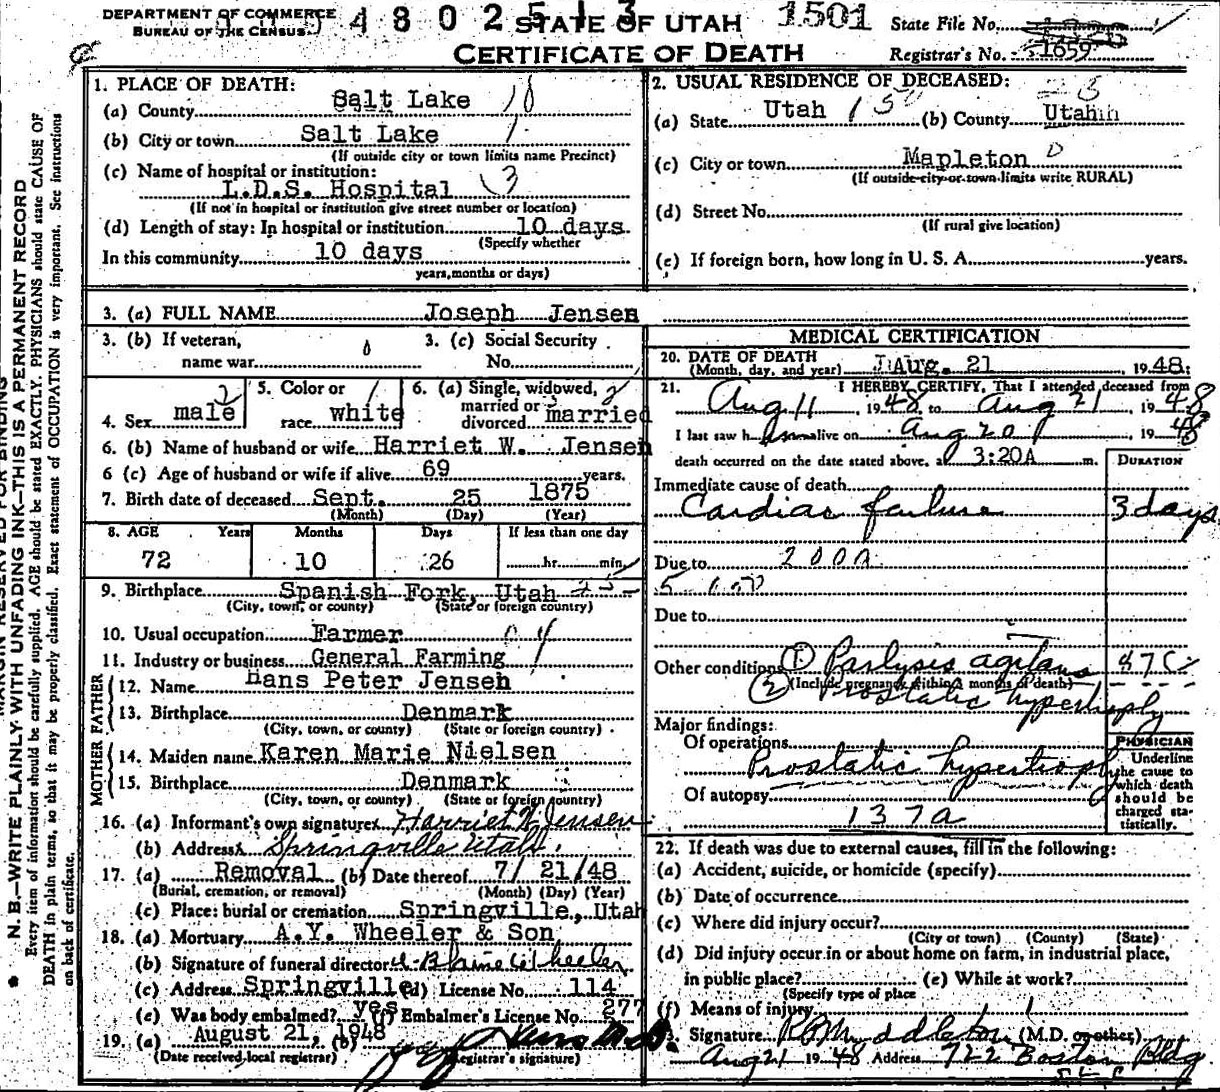 DEPARTMENT OF COMMERCE
BUREAU OF THE CENSUS
48 02513
STATE OF UTAH
CERTIFICATE OF DEATH
1501
State File No.
Registrar's No. 1659
MARGIN RESERVED FOR BINDING
N. B.—WRITE PLAINLY WITH UNFADING INK—THIS IS A PERMANENT RECORD
Every item of information should be carefully supplied. AGE should be stated EXACTLY. PHYSICIANS should state CAUSE OF
DEATH in plain terms, so that it may be properly classified. Exact statement of OCCUPATION is very important. See instructions
on back of certificate.
1. PLACE OF DEATH:
(a) County Salt Lake 18
(b) City or town Salt Lake 1
(If outside city or town limits name Precinct)
(c) Name of hospital or institution:
L.D.S. Hospital 3
(If not in hospital or institution give street number or location)
(d) Length of stay: In hospital or institution 10 days
(Specify whether
In this community 10 days
years, months or days)
2. USUAL RESIDENCE OF DECEASED:
(a) State Utah (b) County Utah
(c) City or town Mapleton 0
(If outside city or town limits write RURAL)
(d) Street No.
(If rural give location)
(e) If foreign born, how long in U. S. A. years.
3. (a) FULL NAME Joseph Jensen
3. (b) If veteran, name war 0
3. (c) Social Security No.
4. Sex male 2
5. Color or race white 1
6. (a) Single, widowed, married or divorced married 2
6. (b) Name of husband or wife Harriet W. Jensen
6 (c) Age of husband or wife if alive 69 years.
7. Birth date of deceased Sept. 25 1875
(Month) (Day) (Year)
8. AGE Years Months Days If less than one day
72 10 26 hr. min.
9. Birthplace Spanish Fork, Utah
(City, town, or county) (State or foreign country)
10. Usual occupation Farmer
11. Industry or business General Farming
FATHER
12. Name Hans Peter Jensen
13. Birthplace Denmark
(City, town, or county) (State or foreign country)
MOTHER
14. Maiden name Karen Marie Nielsen
15. Birthplace Denmark
(City, town, or county) (State or foreign country)
16. (a) Informant's own signature x Harriet W Jensen
(b) Address x Springville Utah.
17. (a) Removal (b) Date thereof 7/ 21/48
(Burial, cremation, or removal) (Month) (Day) (Year)
(c) Place: burial or cremation Springville, Utah
18. (a) Mortuary A.Y. Wheeler & Son
(b) Signature of funeral director Blaine Wheeler
(c) Address Springville (d) License No. 114
(e) Was body embalmed? yes (f) Embalmer's License No. 277
19. (a) August 21, 1948 (b)
(Date received local registrar) (Registrar's signature)
MEDICAL CERTIFICATION
20. DATE OF DEATH
(Month, day, and year) Aug. 21, 1948.
21. I HEREBY CERTIFY, That I attended deceased from
Aug 11, 1948 to Aug 21, 1948
I last saw him alive on Aug 20, 1948
death occurred on the date stated above, at 3:20A m.
DURATION
Immediate cause of death
Cardiac failure 3 days
Due to 200A
Due to
Other conditions (1) Parlysis agitans 87C
(Include pregnancy within 3 months of death)
(2) Prostatic hypertrophy
Major findings:
Of operations
Prostatic hypertrophy
Of autopsy
137a
PHYSICIAN
Underline
the cause to
which death
should be
charged sta-
tistically.
22. If death was due to external causes, fill in the following:
(a) Accident, suicide, or homicide (specify)
(b) Date of occurrence
(c) Where did injury occur?
(City or town) (County) (State)
(d) Did injury occur in or about home on farm, in industrial place,
in public place? (e) While at work?
(Specify type of place
(f) Means of injury
Signature R.B. Myddleton (M.D. or other)
Aug 21 1948 Address 722 Boston Bldg
SLC